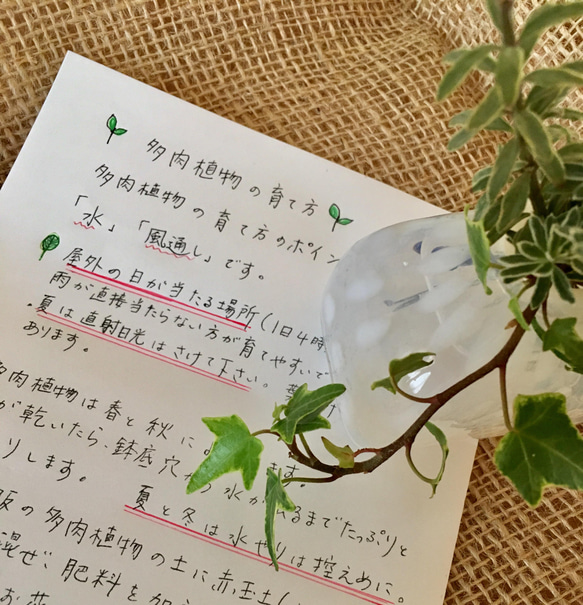 多肉植物の育て方
多肉植物の育て方のポイン
「水」「風通し」です。
屋外の日が当たる場所(1日4時
雨が直接当たらない方が育てやすいで
・夏は直射日光はさけて下さい。葉
あります。
多肉植物は春と秋に
が乾いたら、鉢底穴 水が るまでたっぷりと
りします。 ます。
夏と冬は水やりは控えめに。
販の多肉植物の土に赤玉土(
混ぜ、肥料を加